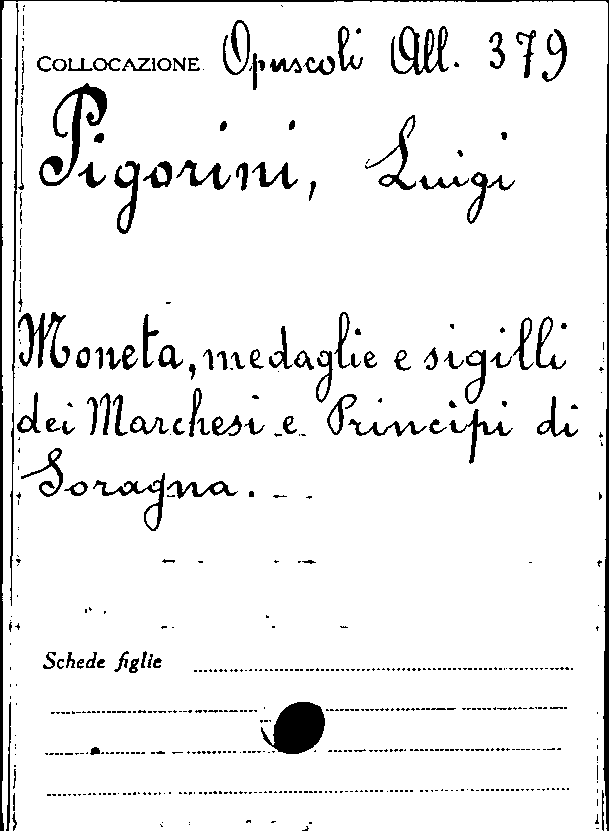 COLLOCAZIONE Opuscoli All. 379
Pigorini, Luigi
Moneta, medaglie e sigilli
dei Marchesi e Principi di
Soragna.
Schede figlie